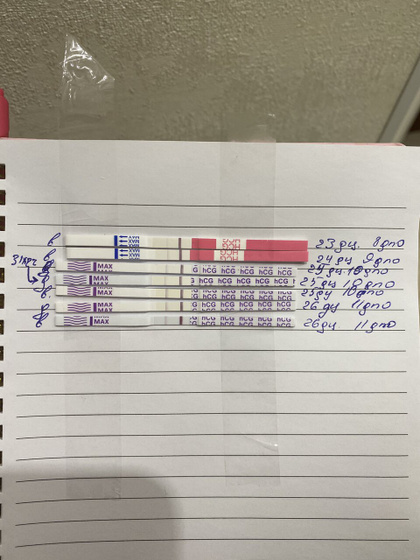 в 23 дц 8 дпо
в 24 дц 9 дпо
MAX hCG hCG hCG hCG hCG 10 дпо
MAX hCG hCG hCG hCG hCG 25 дц 10 дпо
MAX hCG hCG hCG hCG hCG 25 дц 10 дпо
MAX hCG hCG hCG hCG hCG 26 дц 11 дпо
в MAX hCG hCG hCG hCG hCG 26 дц 11 дпо